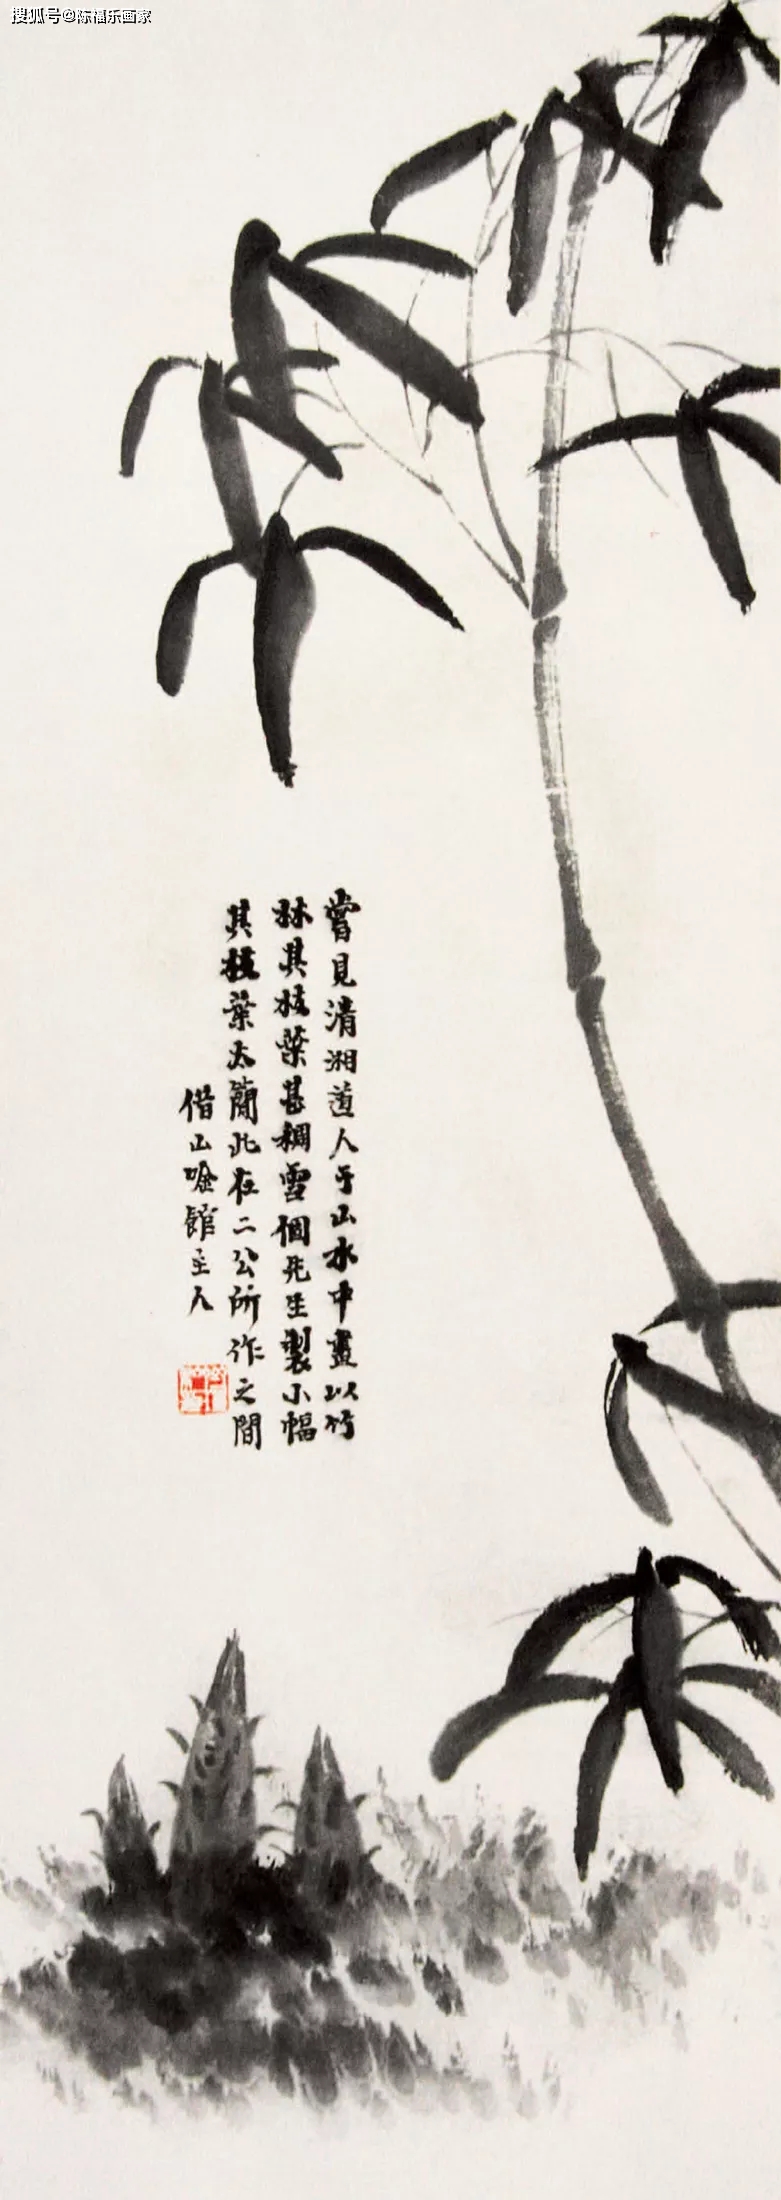 搜狐号@陈福乐画家
嘗見清湘道人于山水中畫以竹
林其枝葉甚稠雪個先生製小幅
其枝葉太簡此在二公所作之間
借山唫館主人